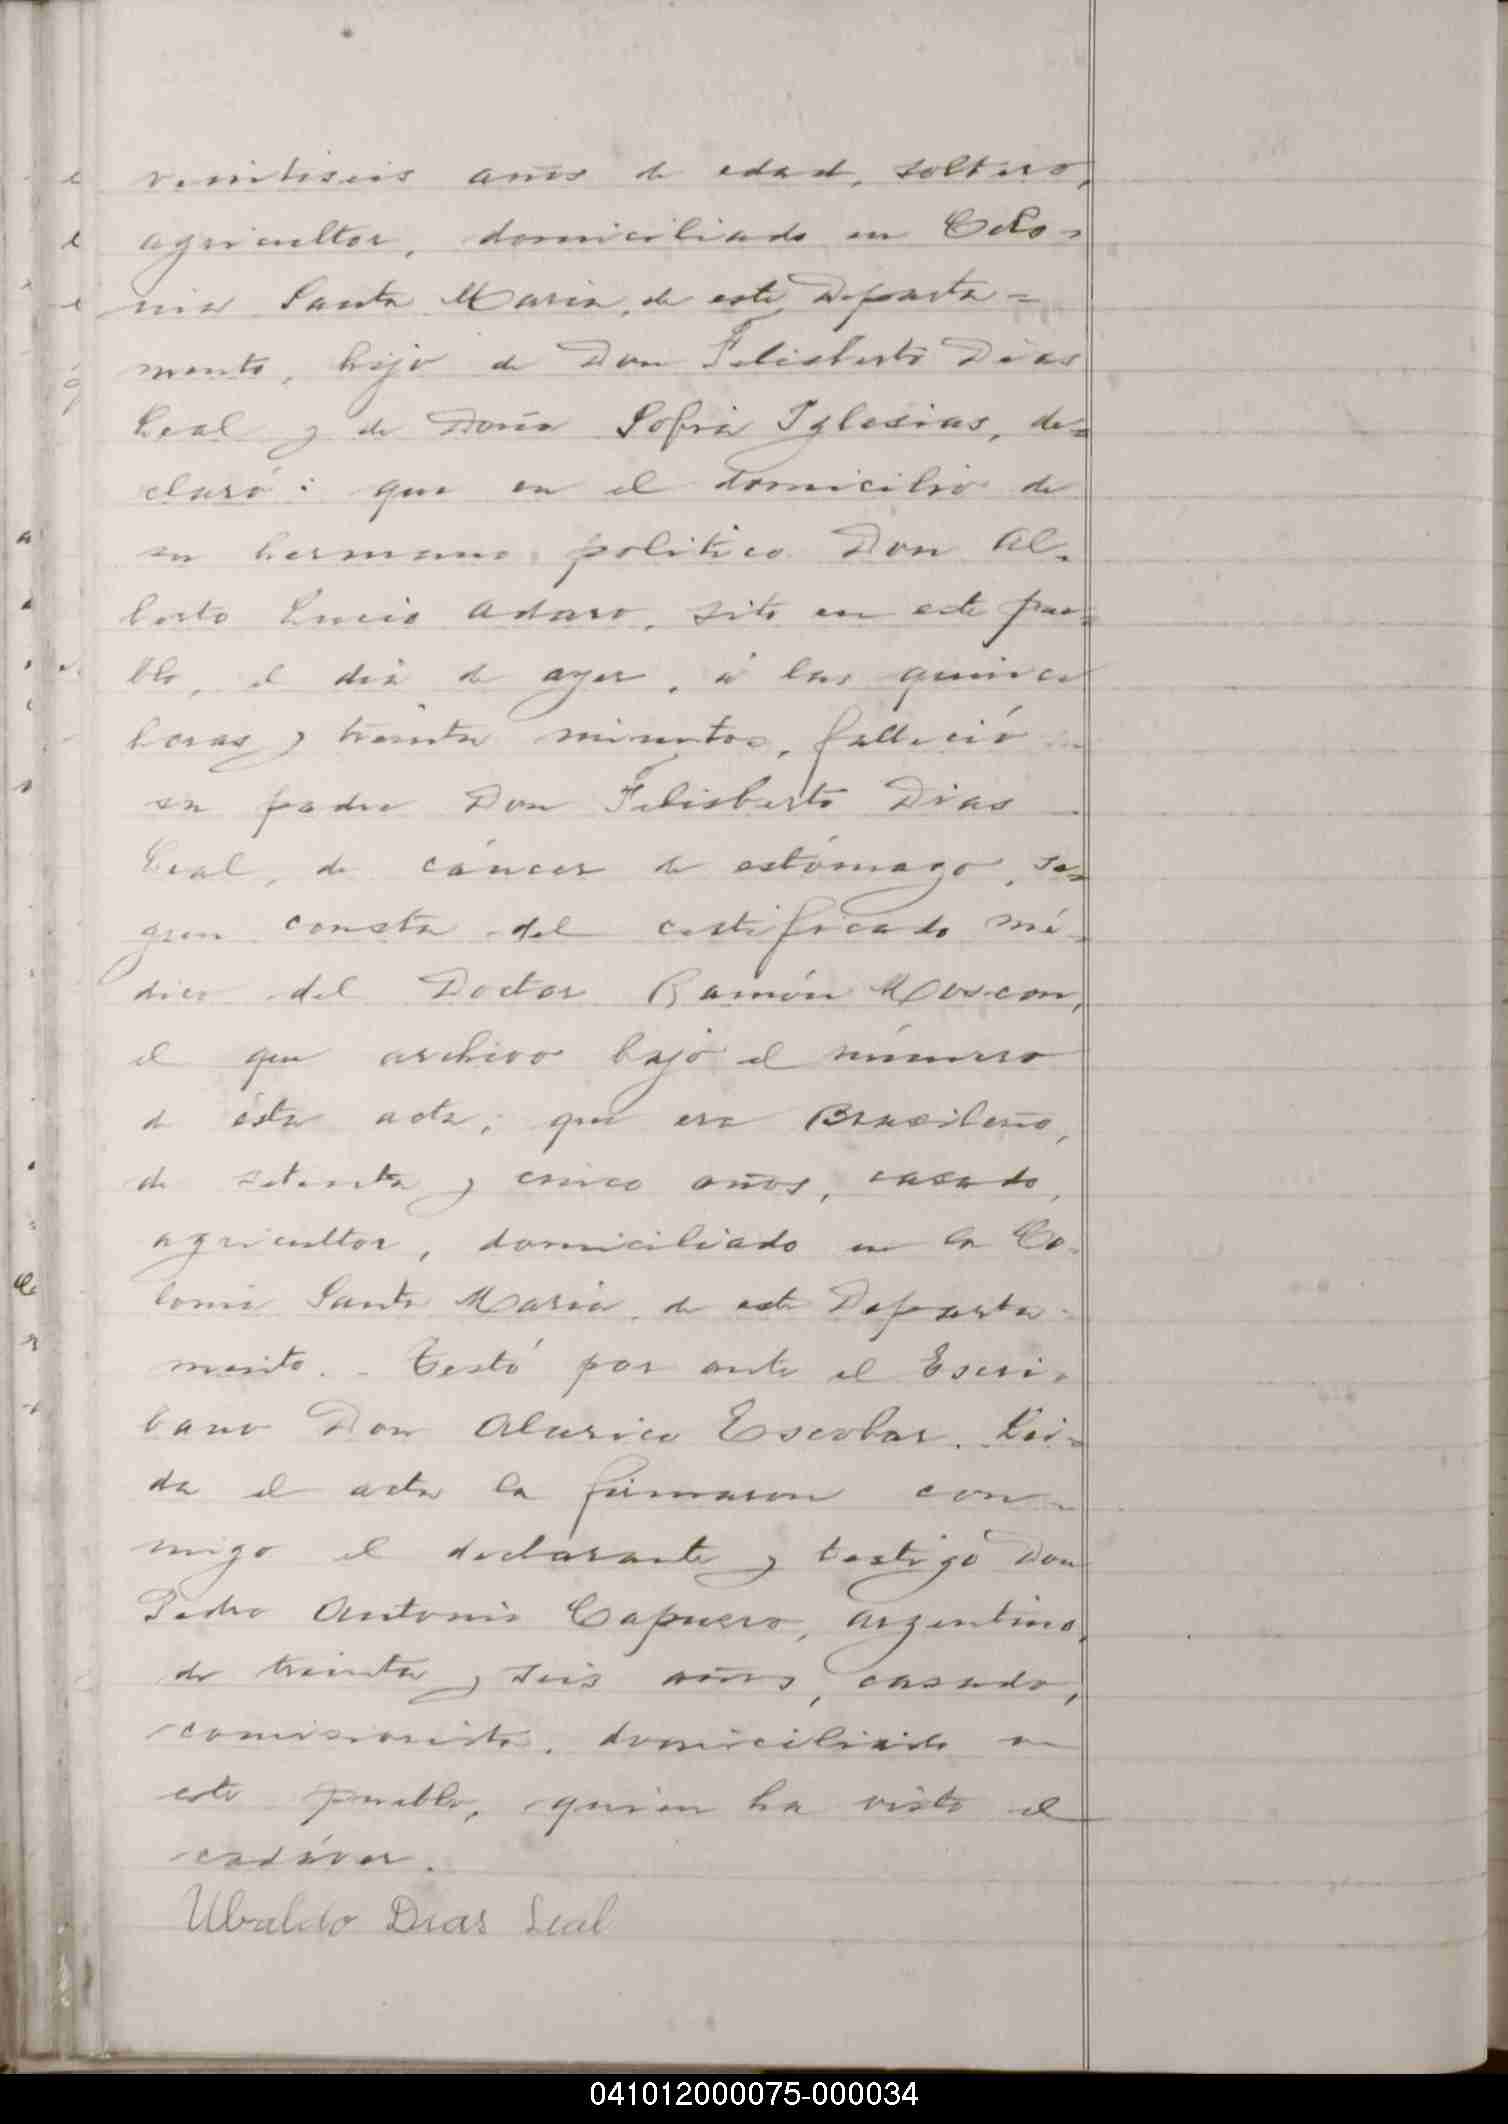 veintiseis años de edad, soltero,
agricultor, domiciliado en Colo=
nia Santa Maria, de este Departa=
mento, hijo de Don Felisberto Dias
Leal y de Doña Sofia Iglesias, de=
claró: que en el domicilio de
su hermano politico Don Al=
berto Lucio Adaro, sito en este pue=
blo, el dia de ayer, á las quince
horas y treinta minutos, falleció
su padre Don Felisberto Dias
Leal, de cáncer de estómago, se=
gun consta del certificado mé=
dico del Doctor Ramón Moscon,
el que archivo bajo el número
de ésta acta; que era Brasileño,
de setenta y cinco años, casado,
agricultor, domiciliado en la Co=
lonia Santa Maria, de este Departa=
mento. - Testó por ante el Escri=
bano Don Alarico Escobar. Lei=
da el acta la firmaron con=
migo el declarante y testigo Don
Pedro Antonio Capuero, argentino,
de treinta y seis años, casado,
comisionista, domiciliado en
este pueblo, quien ha visto el
cadáver.
Ubaldo Dias Leal
041012000075-000034